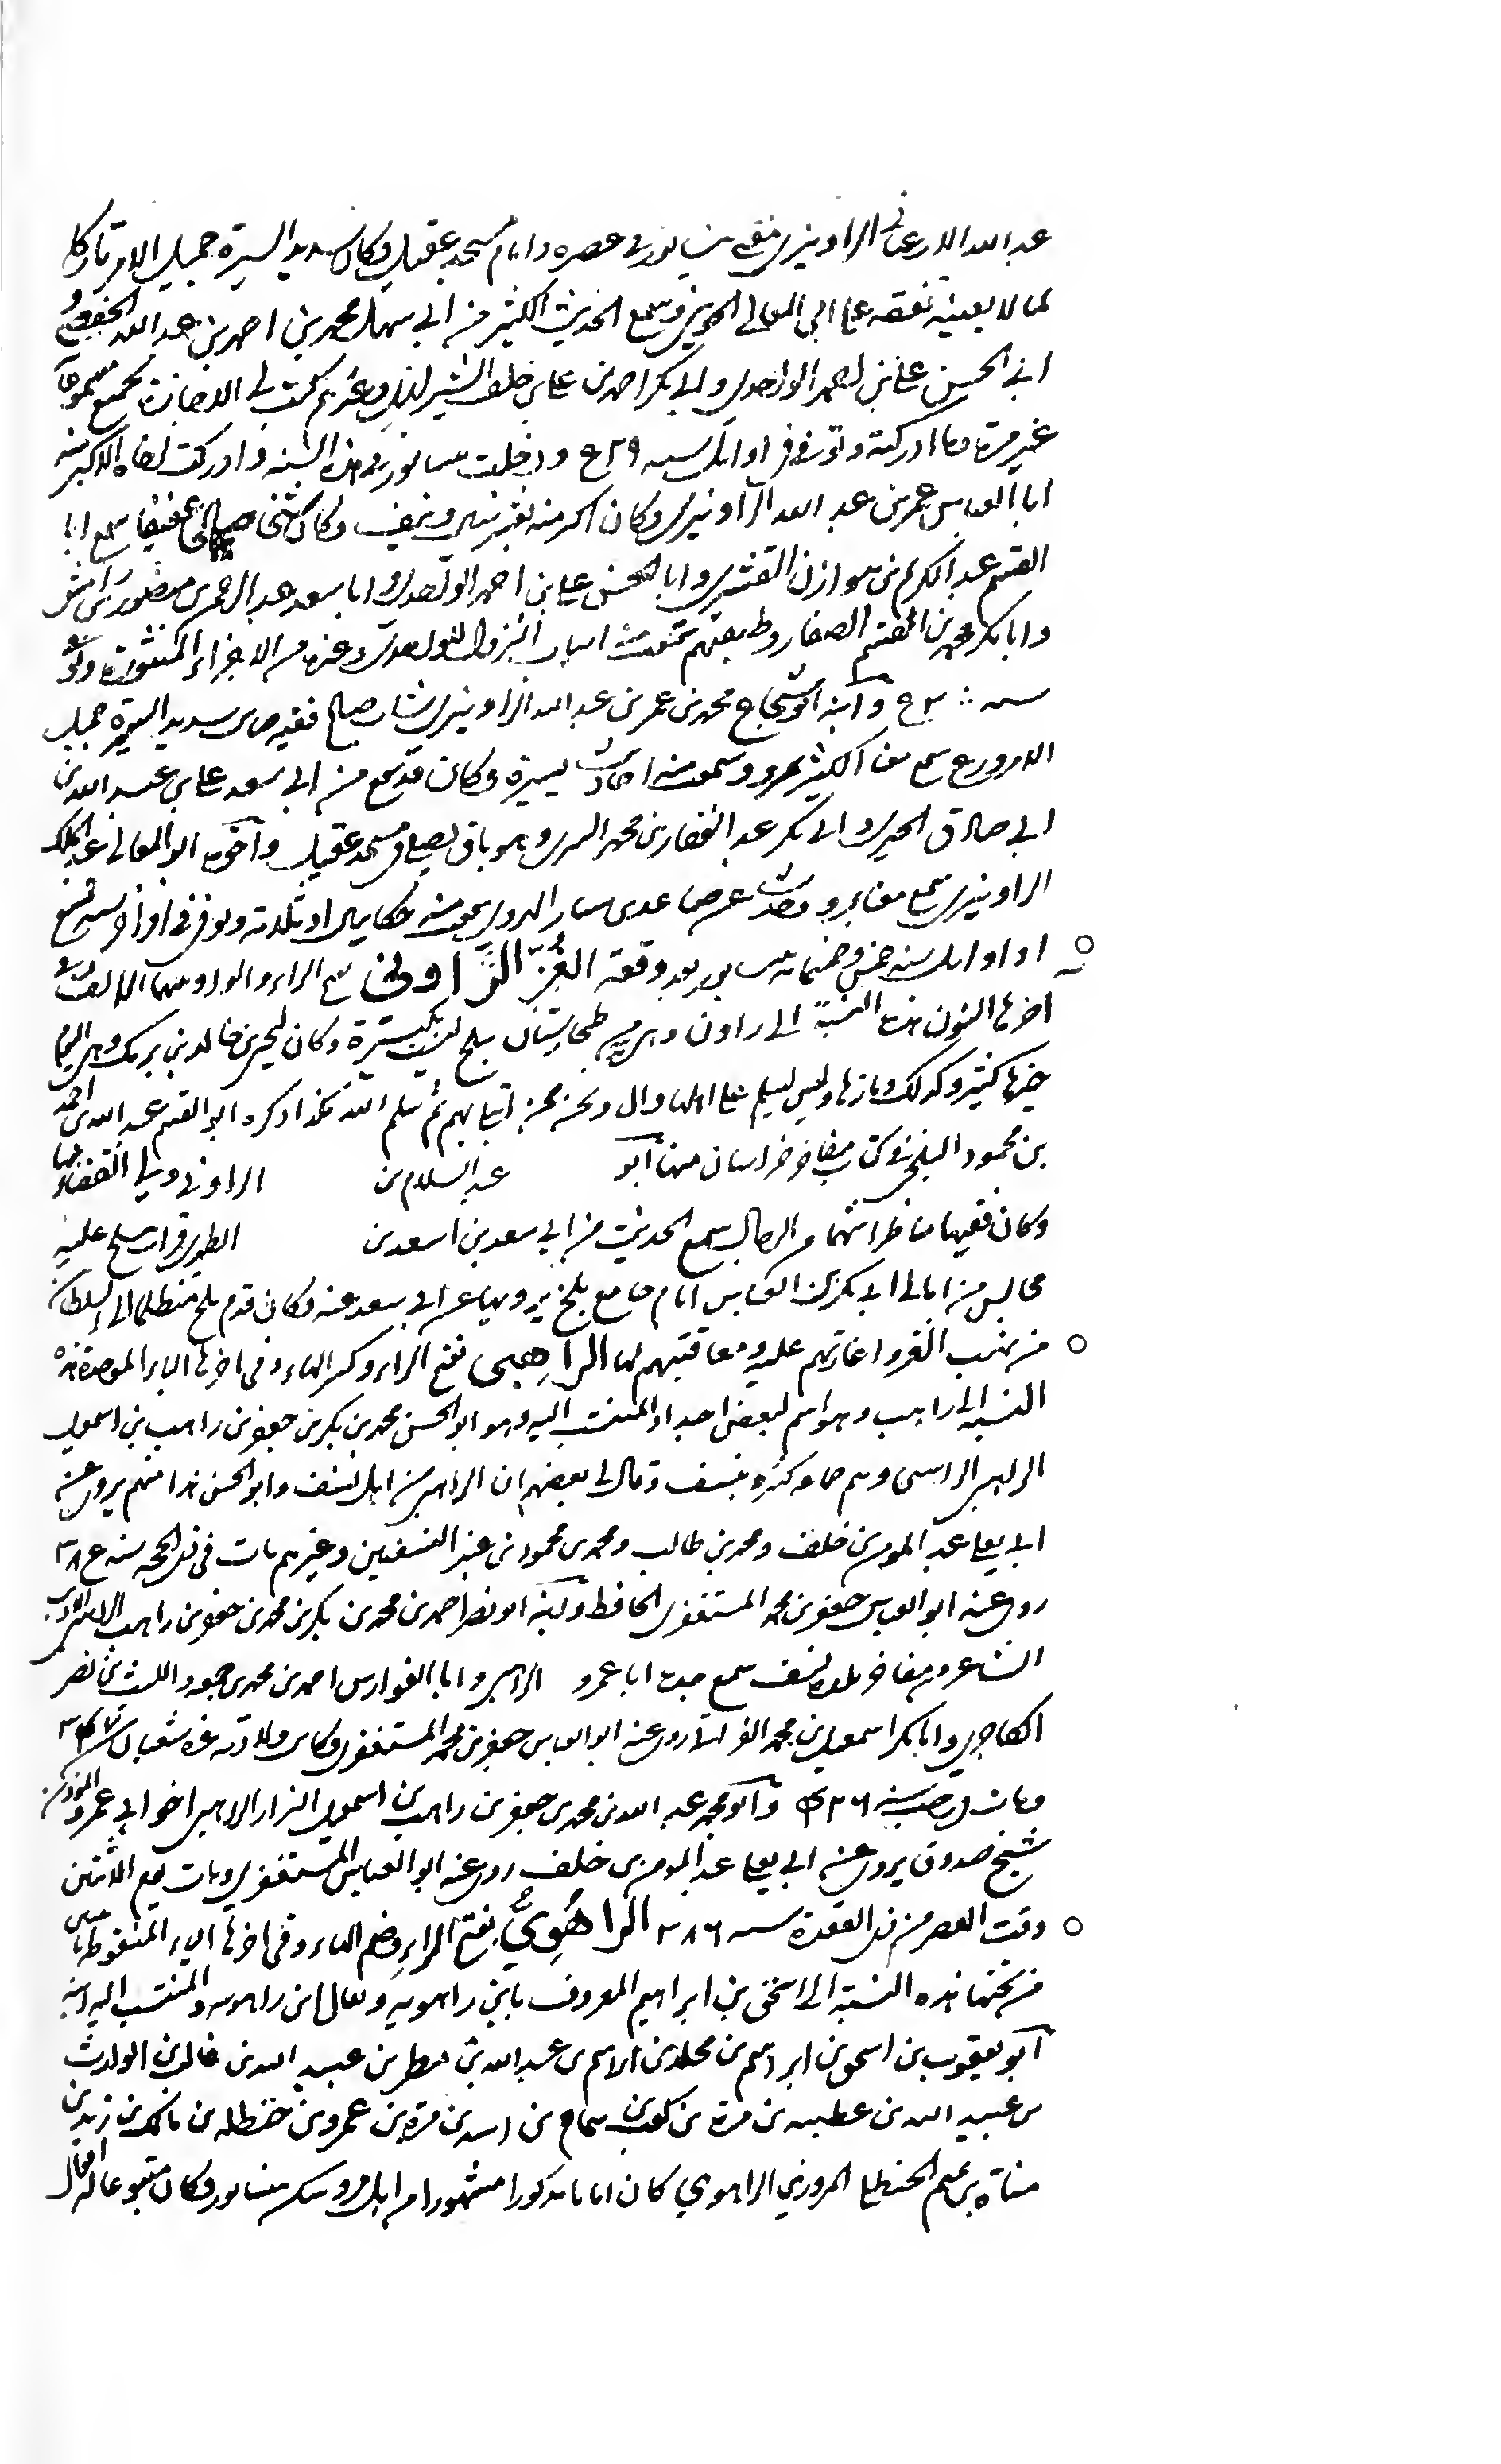 عبد الله الارغياني الراونيري مفتي نيسابور في عصره وامام مسجد عقيل وكان سديد السيرة جميل الامر تاركا
لما لا يعنيه تفقه على ابي المعالي الجويني وسمع الحديث الكثير من ابي سهل محمد بن احمد بن عبد الله الحفصي و
ابي الحسن علي بن احمد الواحدي وابي بكر احمد بن علي بن خلف الشيرازي وغيرهم كتب لي الاجازة بجميع مسموعاته
غير مرة وما ادركته وتوفي في اوائل سنة ٥٢٩ ودخلت نيسابور في هذه السنة وادركت اخاه الاكبر منه
ابا العباس عمر بن عبد الله الراونيري وكان اكبر منه بعشر سنين ونيف وكان شيخا صالحا عفيفا سمع ابا
القسم عبد الكريم بن هوازن القشيري وابا الحسن علي بن احمد الواحدي وابا سعد عبد الرحمن بن منصور بن رامش
وابا بكر محمد بن القسم الصفار وطبقتهم سمعت منه اسباب النزول للواحدي وغيره من الاجزاء المنثورة وتوفي
سنة وابنه ابو شجاع محمد بن عمر بن عبد الله الراونيري شاب صالح فقيه صاين سديد السيرة جميل
الامر ورع سمع معنا الكثير بمرو وسمعت منه احاديث يسيرة وكان قد سمع من ابي سعد علي بن عبد الله بن
ابي صادق الحيري وابي بكر عبد الغفار بن محمد الشيروي وهو باق يصلي في مسجد عقيل واخوه ابو المعالي عبد الملك
الراونيري سمع معنا بمرو وحدث عن سمعت منه حكايتين او ثلاثة وتوفي في اواخر سنة تسع
او اوايل سنة خمس وخمسمائة بنيسابور بعد وقعة الغز الراوني بفتح الراء والواو بينهما الالف وفي
اخرها النون هذه النسبة الى راون وهي من طخارستان بلخ ليست بكبيرة وكان ليحيى بن خالد بن برمك وهي اليوم
خيرها كثير وكذلك وبازها وليس يسلم على اهلها وال ونحن مجن اتيابهم ثم سلم الله هكذا ذكره ابو القسم عبد الله بن احمد
بن محمود البلخي في كتاب مفاخر خراسان منها ابو عبد السلام بن الراوني ولي القضاء بها
وكان فقيها مناظرا شهما من الرجال سمع الحديث من ابي سعد بن اسعد بن الظهيري قرات ببلخ عليه
مجالس من امالي ابي بكر بن العباس امام جامع بلخ يرويها عن ابي سعد عنه وكان قدم بلخ متظلما الى السلطان
من نهب الغز واغارتهم عليه ومعاقبتهم لها الراهبي بفتح الراء وكسر الهاء وفي اخرها الباء الموحدة هذه
النسبة الى راهب وهو اسم لبعض اجداد المنتسب اليه وهو ابو الحسن محمد بن بكر بن جعفر بن راهب بن اسمعيل
الراهبي الراسبي وهم جماعة كثيرة بنسف وقال لي بعضهم ان الراهبي من اهل نسف وابو الحسن هذا منهم يروي عن
ابي يعلى عبد المومن بن خلف ومحمد بن طالب ومحمد بن محمود بن عنبر النسفيين وغيرهم مات في ذي الحجة سنة ٣٨٤
روى عنه ابو العباس جعفر بن محمد المستغفري الحافظ وابنه ابو نصر احمد بن محمد بن بكر بن محمد بن جعفر بن راهب الراهبي الاديب
الشاعر من مفاخر بلدة نسف سمع جده ابا عمرو الراهبي وابا الفوارس احمد بن محمد بن جمعة والليث بن نصر
الكاجري وابا بكر اسمعيل بن محمد الفراء روى عنه ابو العباس جعفر بن محمد المستغفري وكان ولادته غرة شعبان سنة
ومات في رجب سنة وابو محمد عبد الله بن محمد بن جعفر بن راهب بن اسمعيل البزاز الراهبي اخو ابي عمرو المؤذن
شيخ صدوق يروي عن ابي يعلى عبد المومن بن خلف روى عنه ابو العباس المستغفري ومات يوم الاثنين
وقت العصر من ذي القعدة سنة ٣٨٦ الراهوي بفتح الراء وضم الهاء وفي اخرها الياء المنقوطة باثنتين
من تحتها هذه النسبة الى اسحق بن ابراهيم المعروف بابن راهويه ويقال ابن راهويه والمنتسب اليه ابنه
ابو يعقوب بن اسحق بن ابراهيم بن مخلد بن ابراهيم بن عبد الله بن مطر بن عبيد الله بن غالب بن الوارث
بن عبيد الله بن عطية بن مرة بن كعب بن همام بن اسد بن مرة بن عمرو بن حنظلة بن مالك بن زيد بن
مناة بن تميم الحنظلي المروزي الراهوي كان اماما مذكورا مشهورا من اهل مرو سكن نيسابور وكان متبوعا له اقوال